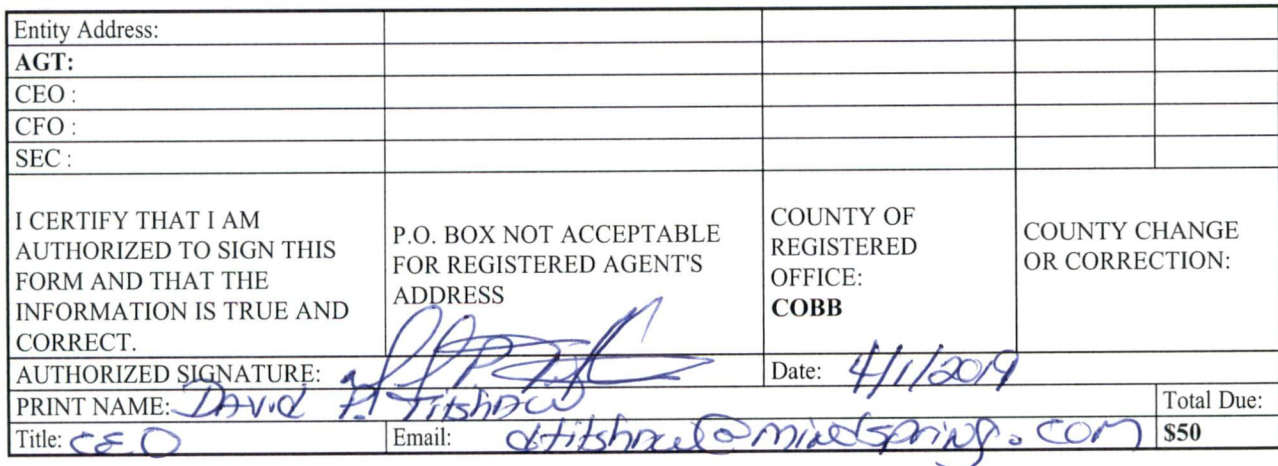 Entity Address:
AGT:
CEO :
CFO :
SEC :
I CERTIFY THAT I AM
AUTHORIZED TO SIGN THIS
FORM AND THAT THE
INFORMATION IS TRUE AND
CORRECT.
P.O. BOX NOT ACCEPTABLE
FOR REGISTERED AGENT'S
ADDRESS
COUNTY OF
REGISTERED
OFFICE:
COBB
COUNTY CHANGE
OR CORRECTION:
AUTHORIZED SIGNATURE:
Date: 4/1/2019
PRINT NAME: David
Total Due:
Title: CEO
Email:
$50